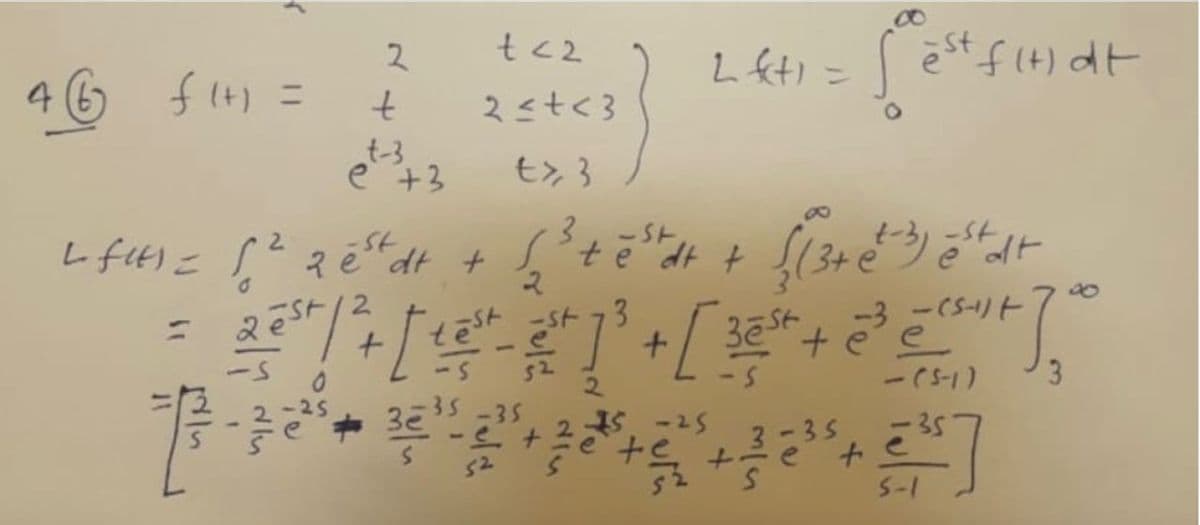 4 (6) f(t) = { 2 t<2
t 2≤t<3
e^{t-3}+3 t≥3 } L f(t) = ∫_0^∞ e^{-st} f(t) dt
L f(t) = ∫_0^2 2e^{-st} dt + ∫_2^3 t e^{-st} dt + ∫_3^∞ (3+e^{t-3}) e^{-st} dt
= 2e^{-st}/-s |_0^2 + [ t e^{-st}/-s - e^{-st}/s^2 ]_2^3 + [ 3e^{-st}/-s + e^{-3} e^{-(s-1)t}/-(s-1) ]_3^∞
= [ 2/s - 2/s e^{-2s} - 3e^{-3s}/s - e^{-3s}/s^2 + 2/s e^{-2s} + e^{-2s}/s^2 + 3/s e^{-3s} + e^{-3s}/s-1 ]